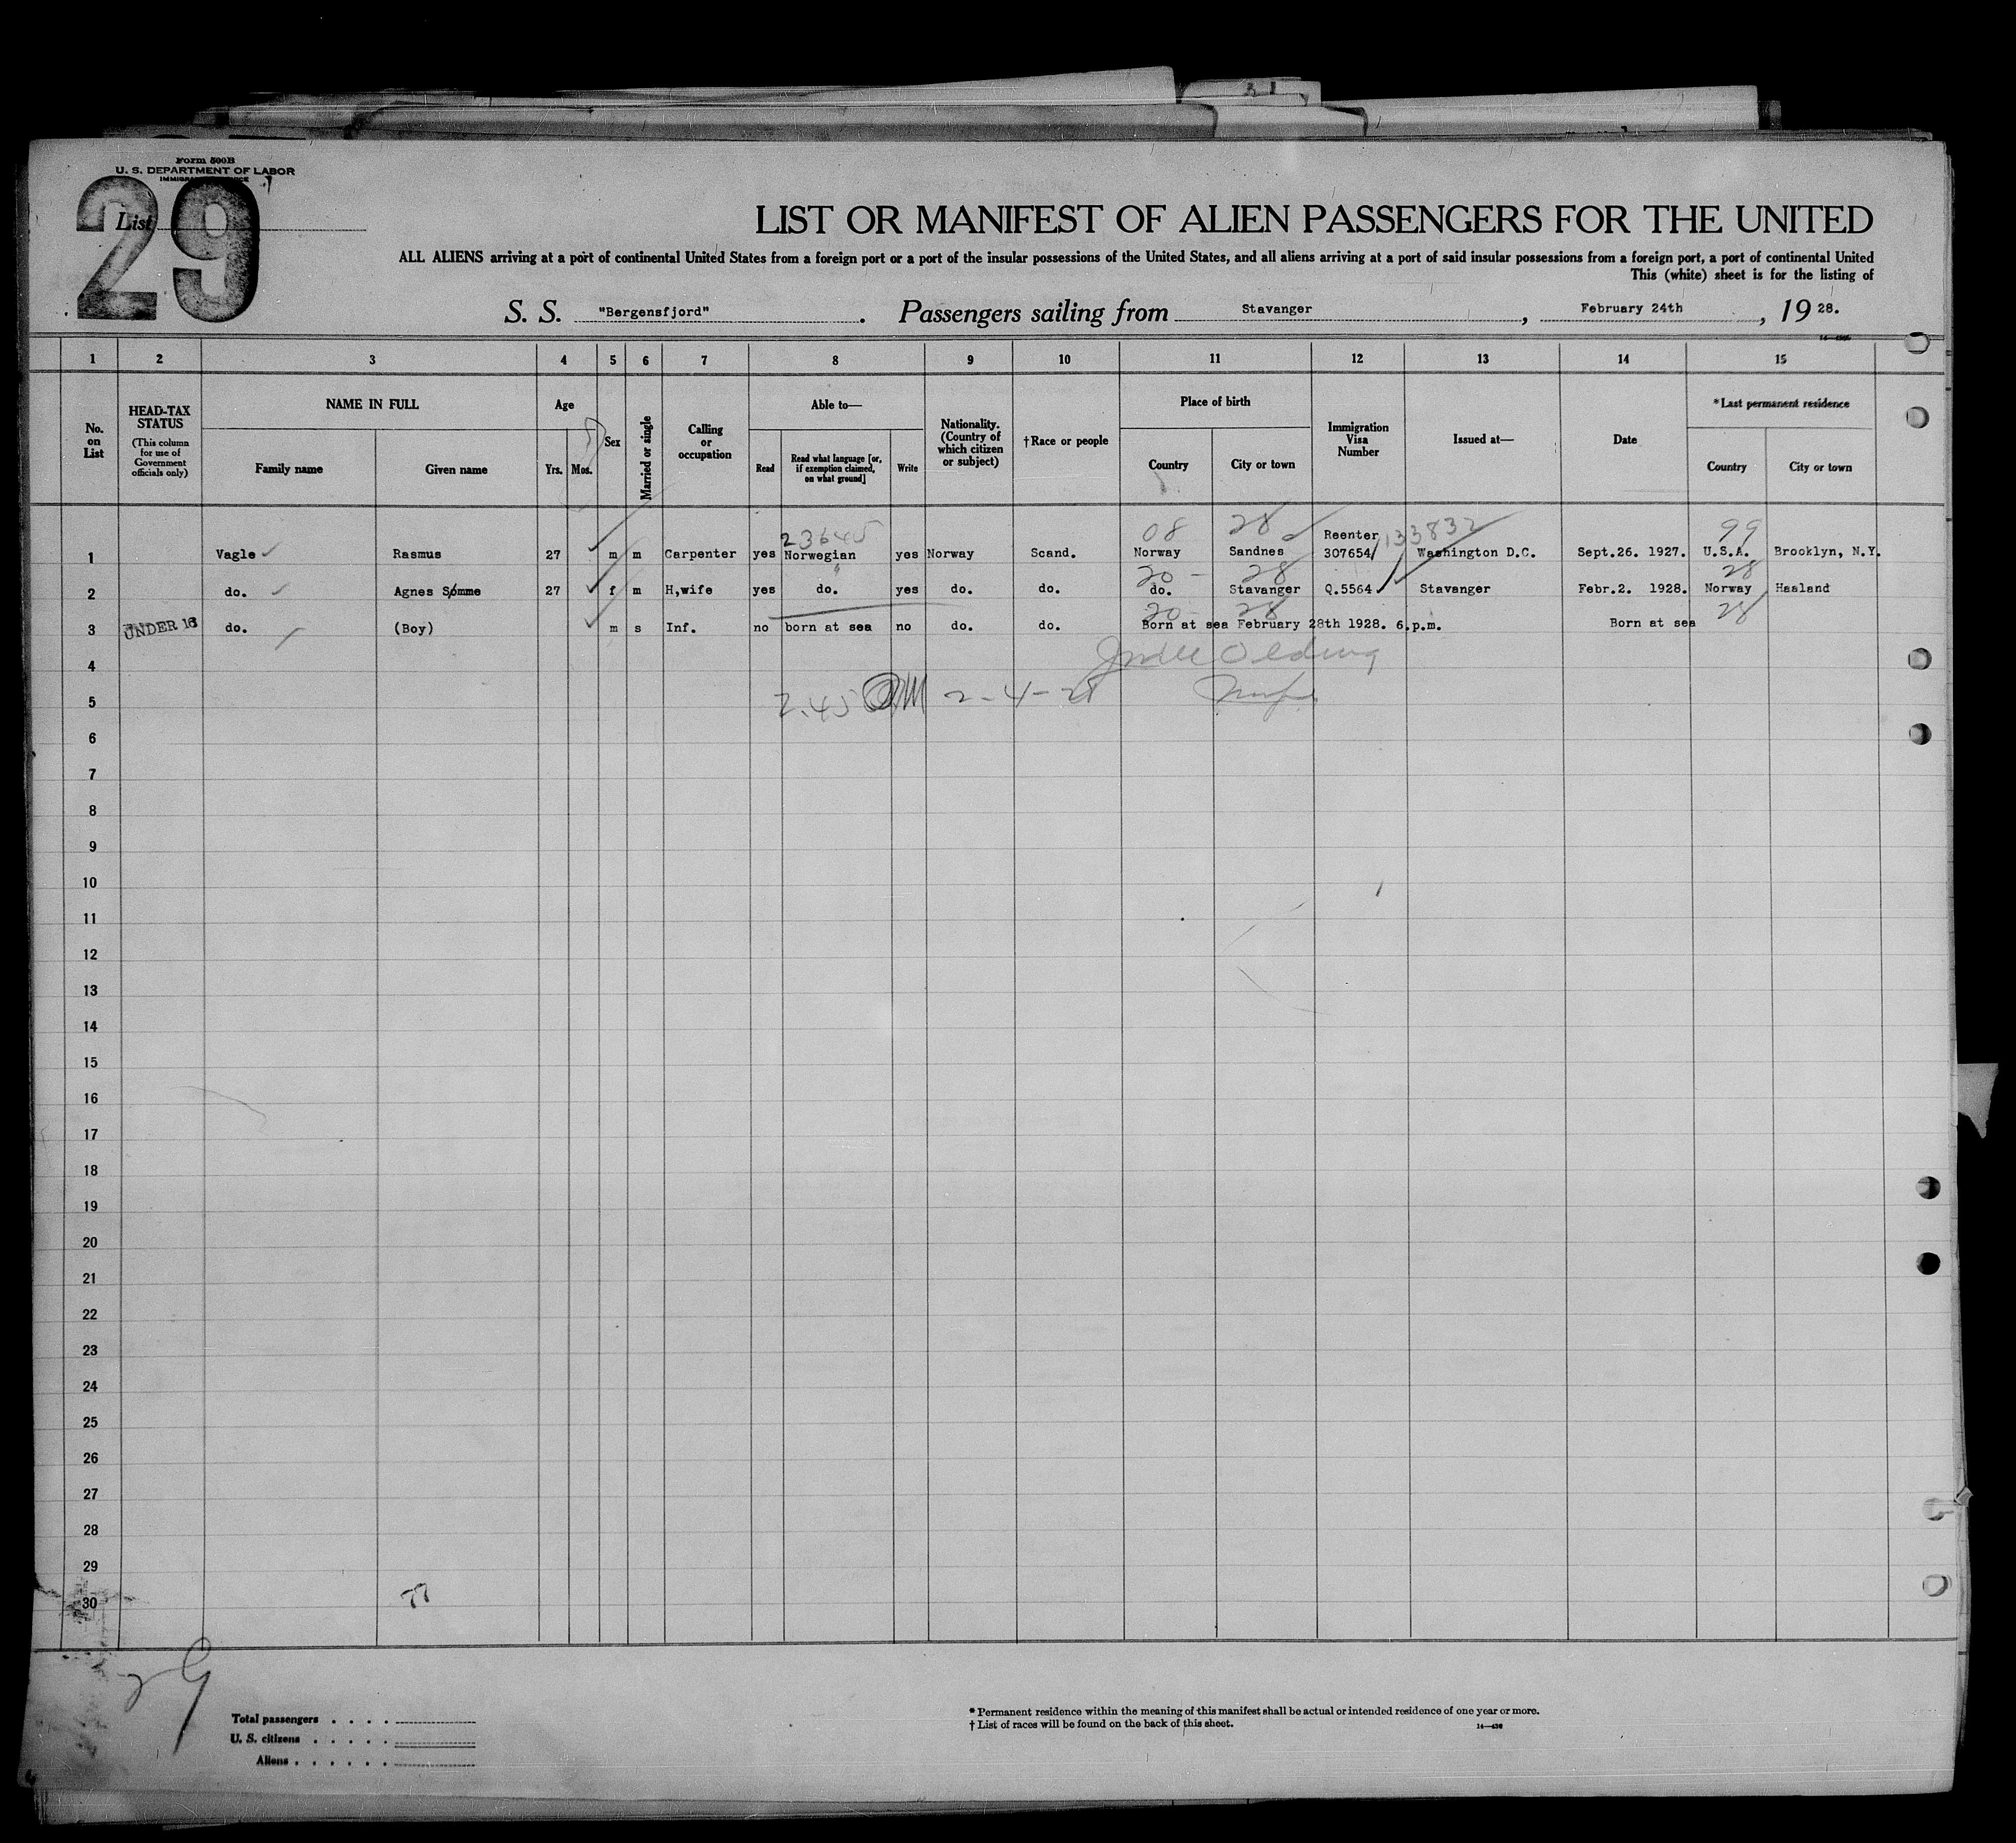 Form 500B
U. S. DEPARTMENT OF LABOR
List
29
LIST OR MANIFEST OF ALIEN PASSENGERS FOR THE UNITED
ALL ALIENS arriving at a port of continental United States from a foreign port or a port of the insular possessions of the United States, and all aliens arriving at a port of said insular possessions from a foreign port, a port of continental United
This (white) sheet is for the listing of
S. S. "Bergensfjord". Passengers sailing from Stavanger, February 24th, 1928.
1 2 3 4 5 6 7 8 9 10 11 12 13 14 15
No. on List
HEAD-TAX STATUS
(This column for use of Government officials only)
NAME IN FULL
Family name
Given name
Age
Yrs.
Mos.
Sex
Married or single
Calling or occupation
Able to—
Read
Read what language [or, if exemption claimed, on what ground]
Write
Nationality. (Country of which citizen or subject)
†Race or people
Place of birth
Country
City or town
Immigration Visa Number
Issued at—
Date
*Last permanent residence
Country
City or town
23645 08 28 133832 99
1 Vagle Rasmus 27 m m Carpenter yes Norwegian yes Norway Scand. Norway Sandnes Reenter 307654 Washington D.C. Sept.26. 1927. U.S.A. Brooklyn, N.Y.
20 - 28 28
2 do. Agnes Sømme 27 f m H,wife yes do. yes do. do. do. Stavanger Q.5564 Stavanger Febr.2. 1928. Norway Haaland
20- 28 28
3 UNDER 16 do. (Boy) m s Inf. no born at sea no do. do. Born at sea February 28th 1928. 6.p.m. Born at sea
4
5 2.45
6
7
8
9
10
11
12
13
14
15
16
17
18
19
20
21
22
23
24
25
26
27
28
29
30 77
29
Total passengers
U. S. citizens
Aliens
* Permanent residence within the meaning of this manifest shall be actual or intended residence of one year or more.
† List of races will be found on the back of this sheet.